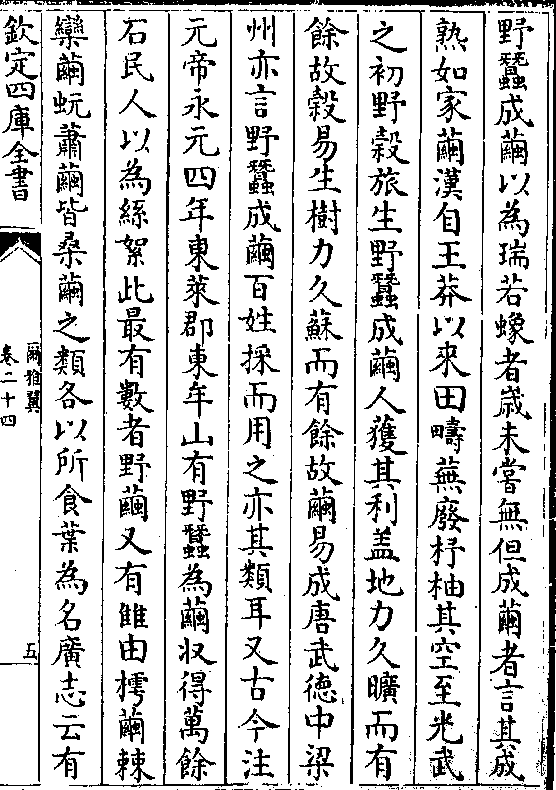 野蠶成繭以為瑞若蟓者歳未嘗無但成繭者言其成
熟如家繭漢自王莽以來田疇蕪廢杼柚其空至光武
之初野榖旅生野蠶成繭人獲其利盖地力久曠而有
餘故榖易生樹力久蘇而有餘故繭易成唐武德中梁
州亦言野蠶成繭百姓採而用之亦其類耳又古今注
元帝永元四年東萊郡東牟山有野蠶為繭收得萬餘
石民人以為絲絮此最有數者野繭又有雔由樗繭棘
欒繭蚢蕭繭皆桑繭之類各以所食葉為名廣志云有
欽定四庫全書
爾雅翼
卷二十四
五